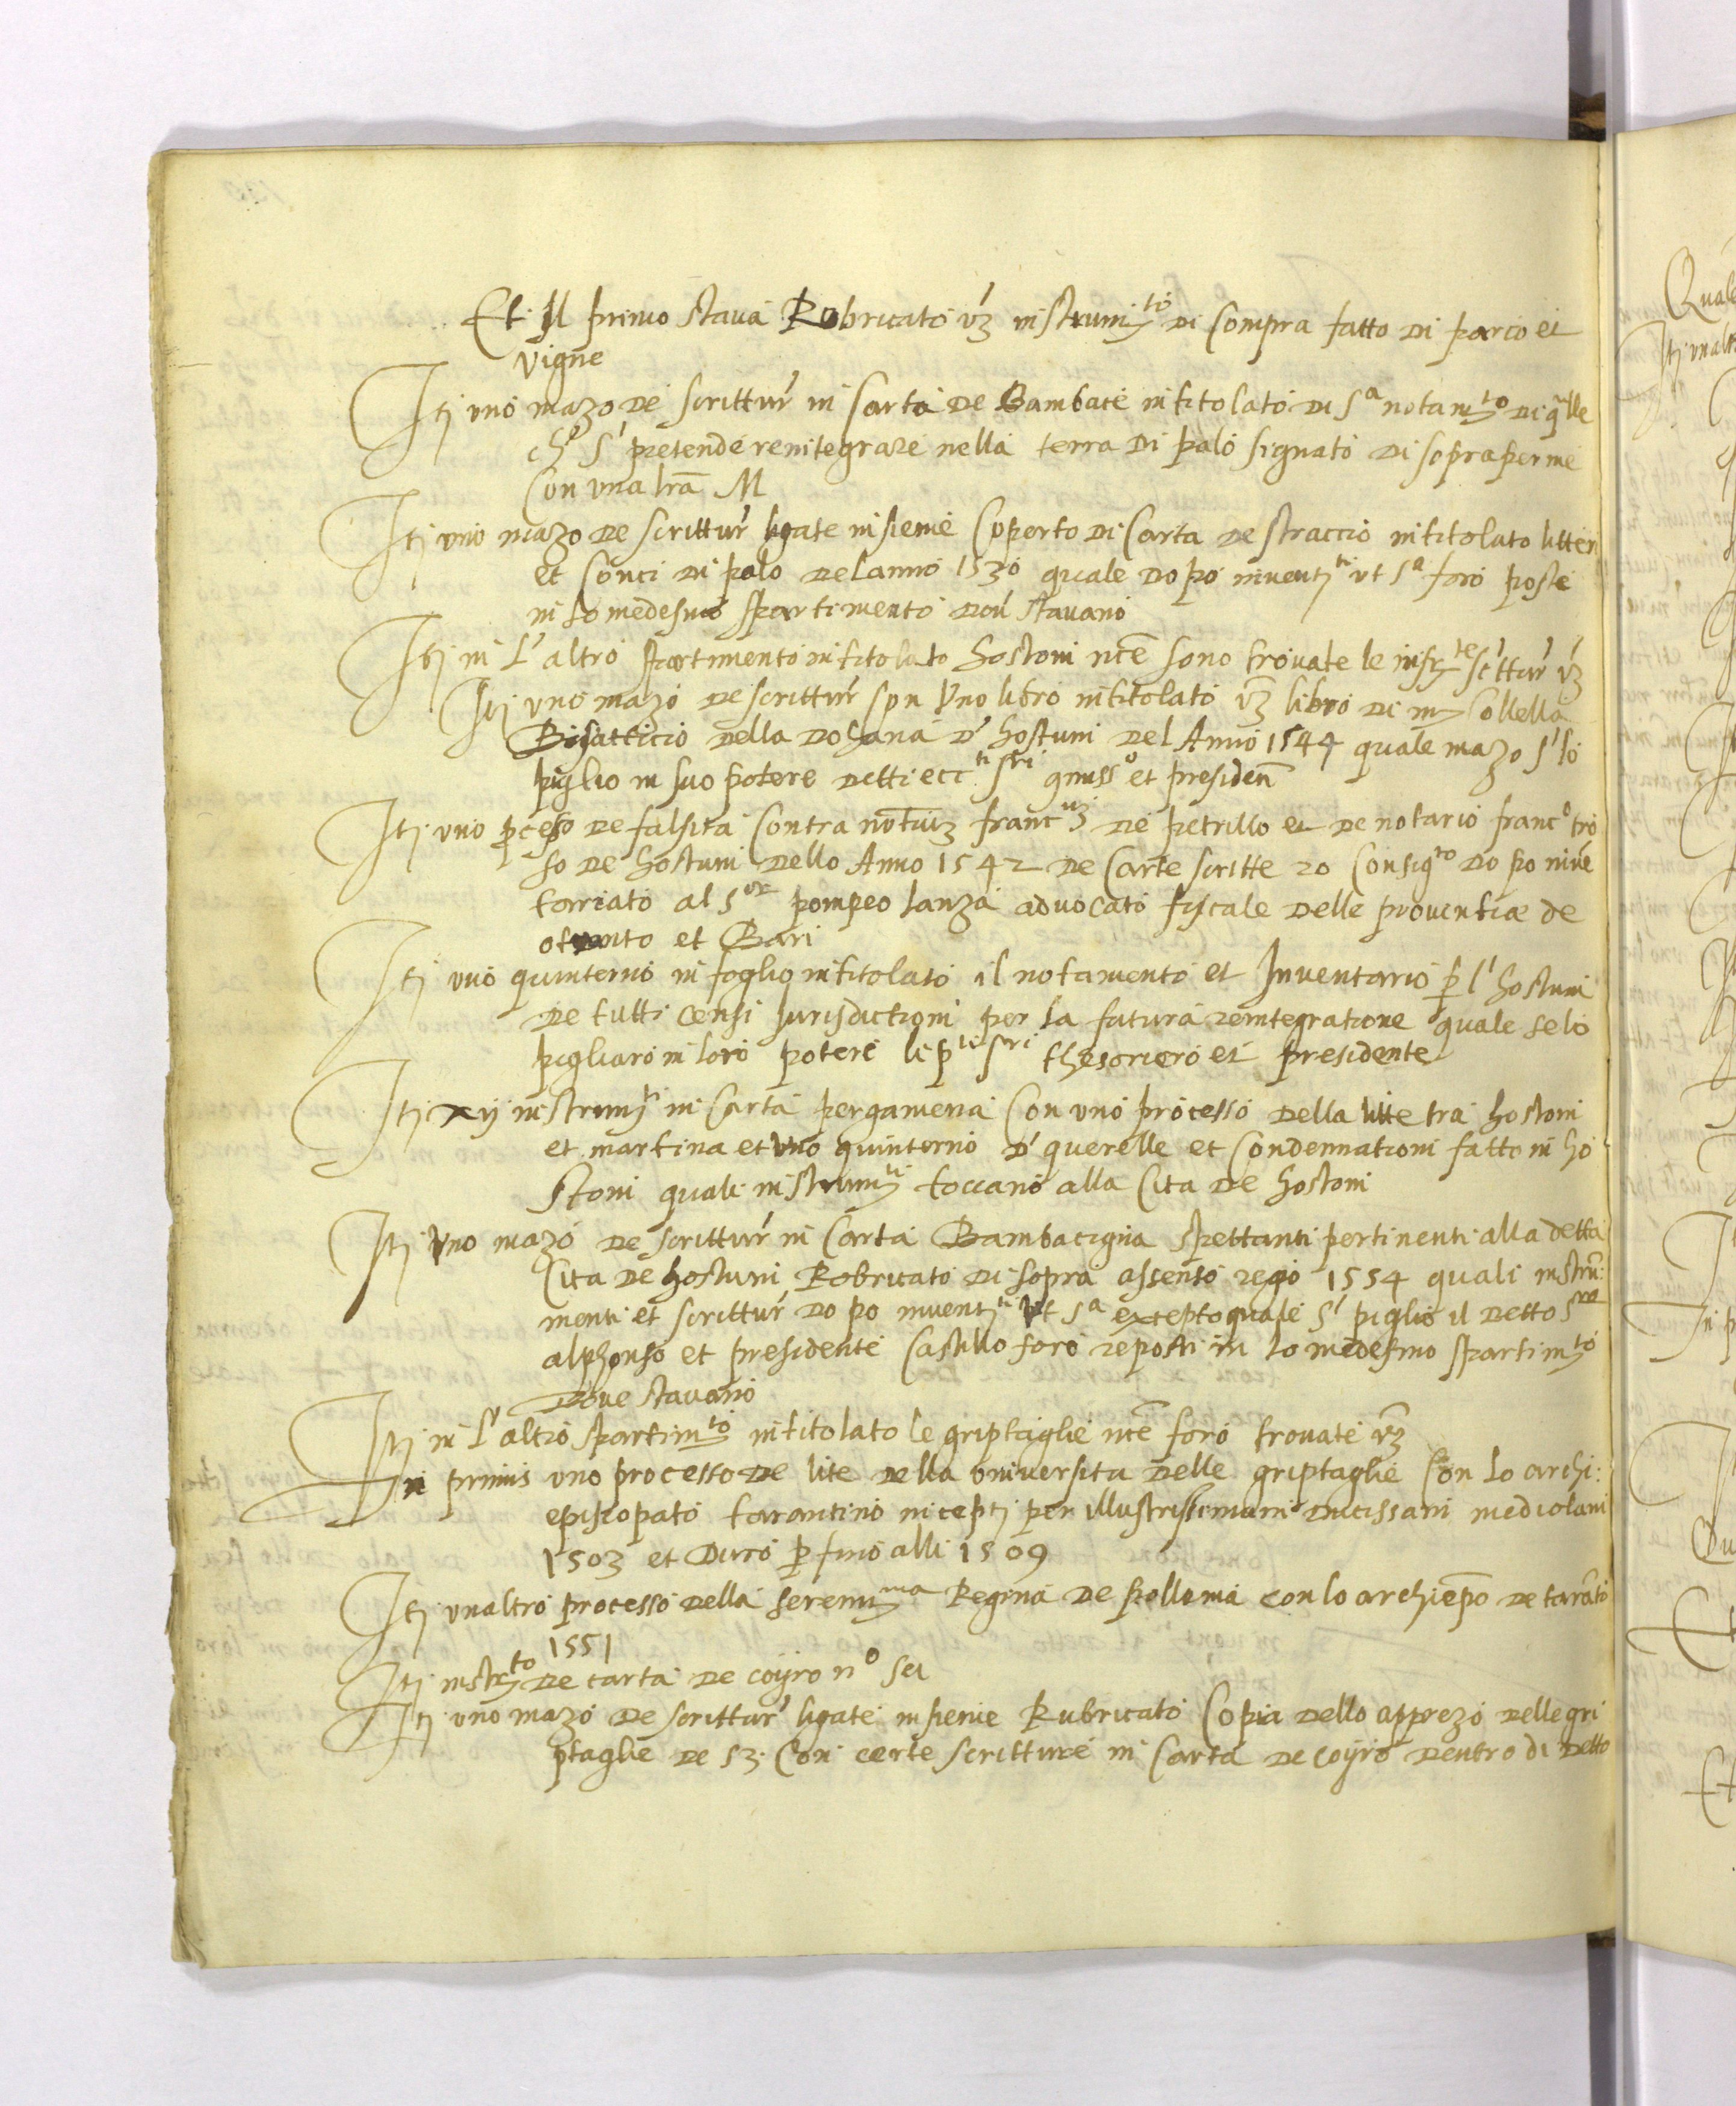 Et Il primo staua Robricato vz instrumto di Compra fatto di parco et
vigne
Itj uno mazo de scrittur' in Carta de Bambace intitolato di sa notamto di qlle
che s' pretende reintegrare nella terra di palo signato di sopra per me
Con una lra M
Itj uno mazo de scrittur' ligate insieme Coperto di Carta de straccio intitolato litter
et Conci di palo delanno 1530 quale dopo inventti ut sa foro poste
in lo medesmo spartimento dou' stauano
Itj in L'altro spartimento intitolato hostoni nce sono trouate le infrte scrittur' vz
Itj uno mazo de scrittur' Uno libro intitolato vz libro di Collella
Bisatticio della dohana d' hostuni del Anno 1544 quale mazo s' lo
piglio in suo potere detti ecc.ti sri et presiden
Itj uno pcesso de falsita Contra franc de petrillo et de notario franco tro
so de hostuni dello Anno 1542 de Carte scritte 20 Consigto dopo inve
tariato al sor pompeo lanza advocato fiscale delle provintie de
otranto et Bari
Itj uno quinterno in foglio intitolato il notamento et Inventario p l' hostuni
de tutti censi Iurisdictioni per la futura reintegratione quale se lo
pigliaro in loro potere li pti sri thesoriero et presidente
Itj xij instrumti in Carta pergamena Con uno processo della lite tra hostoni
et martina et uno quinterno d' querelle et Condennationi fatto in ho
stoni quali instrumti toccano alla Cita de hostoni
Itj Uno mazo de scrittur' in Carta Bambacigna spettanti pertinenti alla detta
Cita de hostuni Robricato di sopra assenso regio 1554 quali instru:
menti et scrittur' dopo inventti ut sa excepto quale s' piglio il detto sre
alphonso et presidente Castillo foro reposti in lo medesmo spartimto
doue stauano
Itj in L'altro spartimto intitolato le griptaglie nce foro trouate vz
In primis uno processo de lite della universita delle griptaglie Con lo archi:
episcopato tarantino inceptj per illustrissimam ducissam mediolani
1503 et duro p fino alli 1509
Itj unaltro processo della serenma Regina de pollonia con lo archiepo de tarato
1551
Itj instrto de carta de coyro no sei
Itj uno mazo de scrittur' ligate insieme Rubricato Copia dello apprezo delle gri
ptaglie de 53. Con certe scritture in Carta de coyro dentro di detto